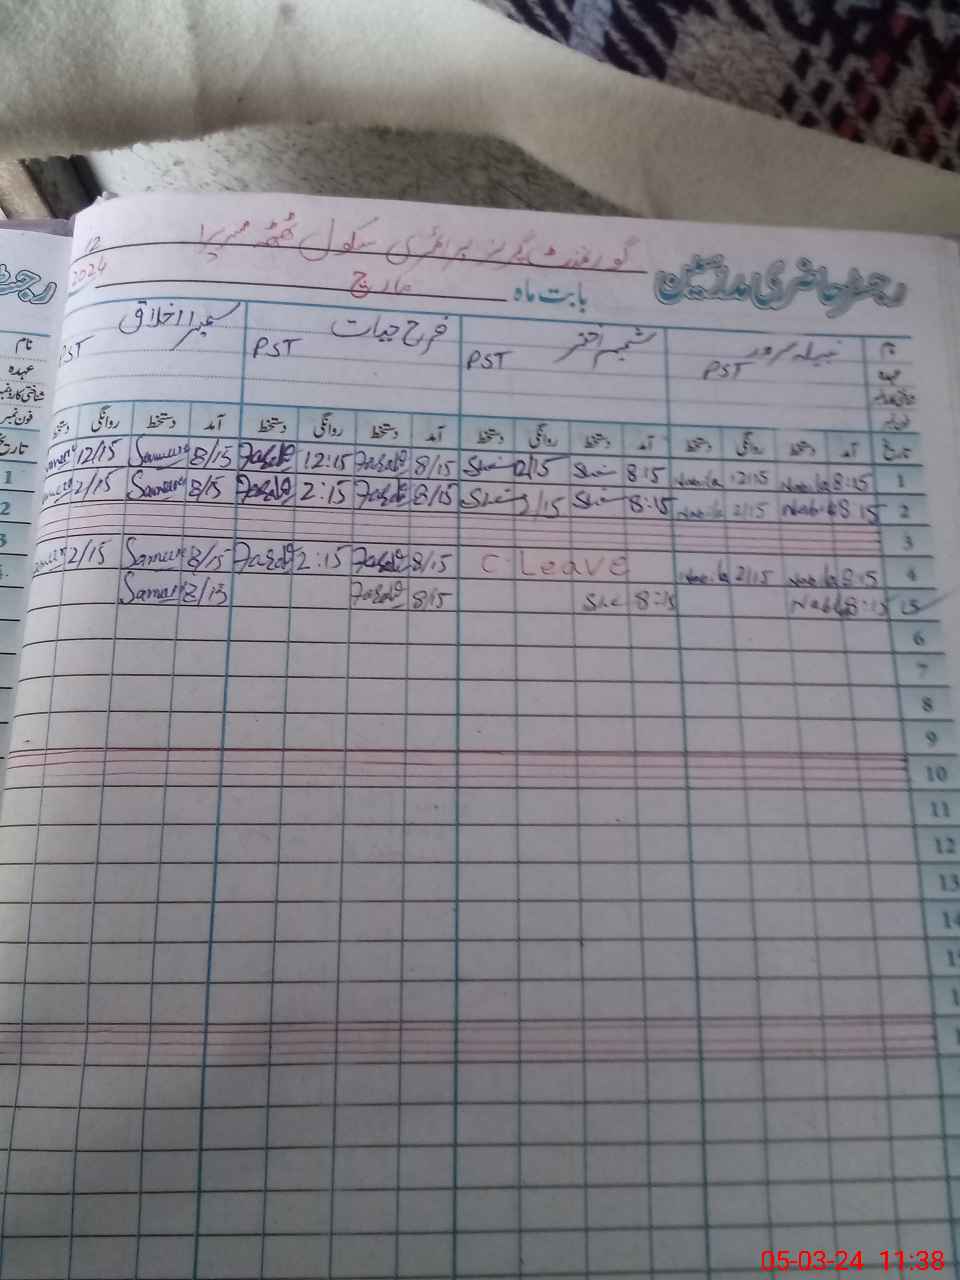 گورنمنٹ گرلز پرائمری سکول ٹھٹھہ
رجسٹر حاضری مدرسین
بابت ماہ مارچ 2024
12
نام نبیلہ سرور شمیم اختر فرح حیات سمیرا اخلاق
عہدہ PST PST PST PST
تاریخ آمد دستخط روانگی دستخط آمد دستخط روانگی دستخط آمد دستخط روانگی دستخط آمد دستخط روانگی دستخط
1 8:15 Nabila 12/15 Nabila 8:15 12/15 8/15 Farah 12:15 Farah 8/15 Sameera 12/15
2 8:15 Nabila 2/15 Nabila 8:15 2/15 8/15 Farah 2:15 Farah 8/15 Sameera 2/15
3
4 8:15 Nabila 2/15 Nabila C-Leave 8/15 Farah 2:15 Farah 8/15 Sameera 2/15
5 8:15 Nabila 8:15 8/15 Farah 8/15 Sameera
6
7
8
9
10
11
12
13
نام
عہدہ
شناختی کارڈ نمبر
فون نمبر
تاریخ
1
2
3
4
05-03-24 11:38